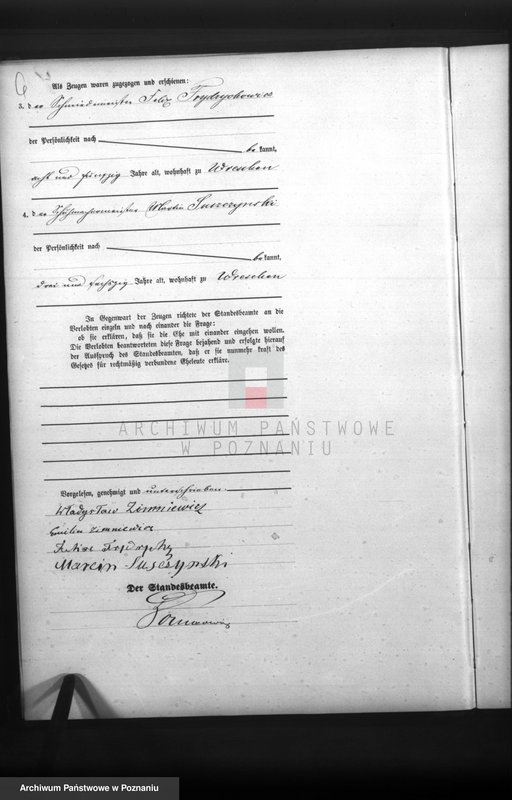 Als Zeugen waren zugezogen und erschienen:
3. der Schmiedemeister Felix Frydrychowicz
der Persönlichkeit nach
bekannt,
acht und fünfzig Jahre alt, wohnhaft zu Wreschen
4. der Schuhmachermeister Martin Suszczynski
der Persönlichkeit nach
bekannt,
drei und sechszig Jahre alt, wohnhaft zu Wreschen
In Gegenwart der Zeugen richtete der Standesbeamte an die
Verlobten einzeln und nach einander die Frage:
ob sie erklären, daß sie die Ehe mit einander eingehen wollen.
Die Verlobten beantworteten diese Frage bejahend und erfolgte hierauf
der Ausspruch des Standesbeamten, daß er sie nunmehr kraft des
Gesetzes für rechtmäßig verbundene Eheleute erkläre.
ARCHIWUM PAŃSTWOWE
W POZNANIU
Vorgelesen, genehmigt und unterschrieben.
Władysław Zimniewicz
Marcin Susczynski
Der Standesbeamte.
Archiwum Państwowe w Poznaniu